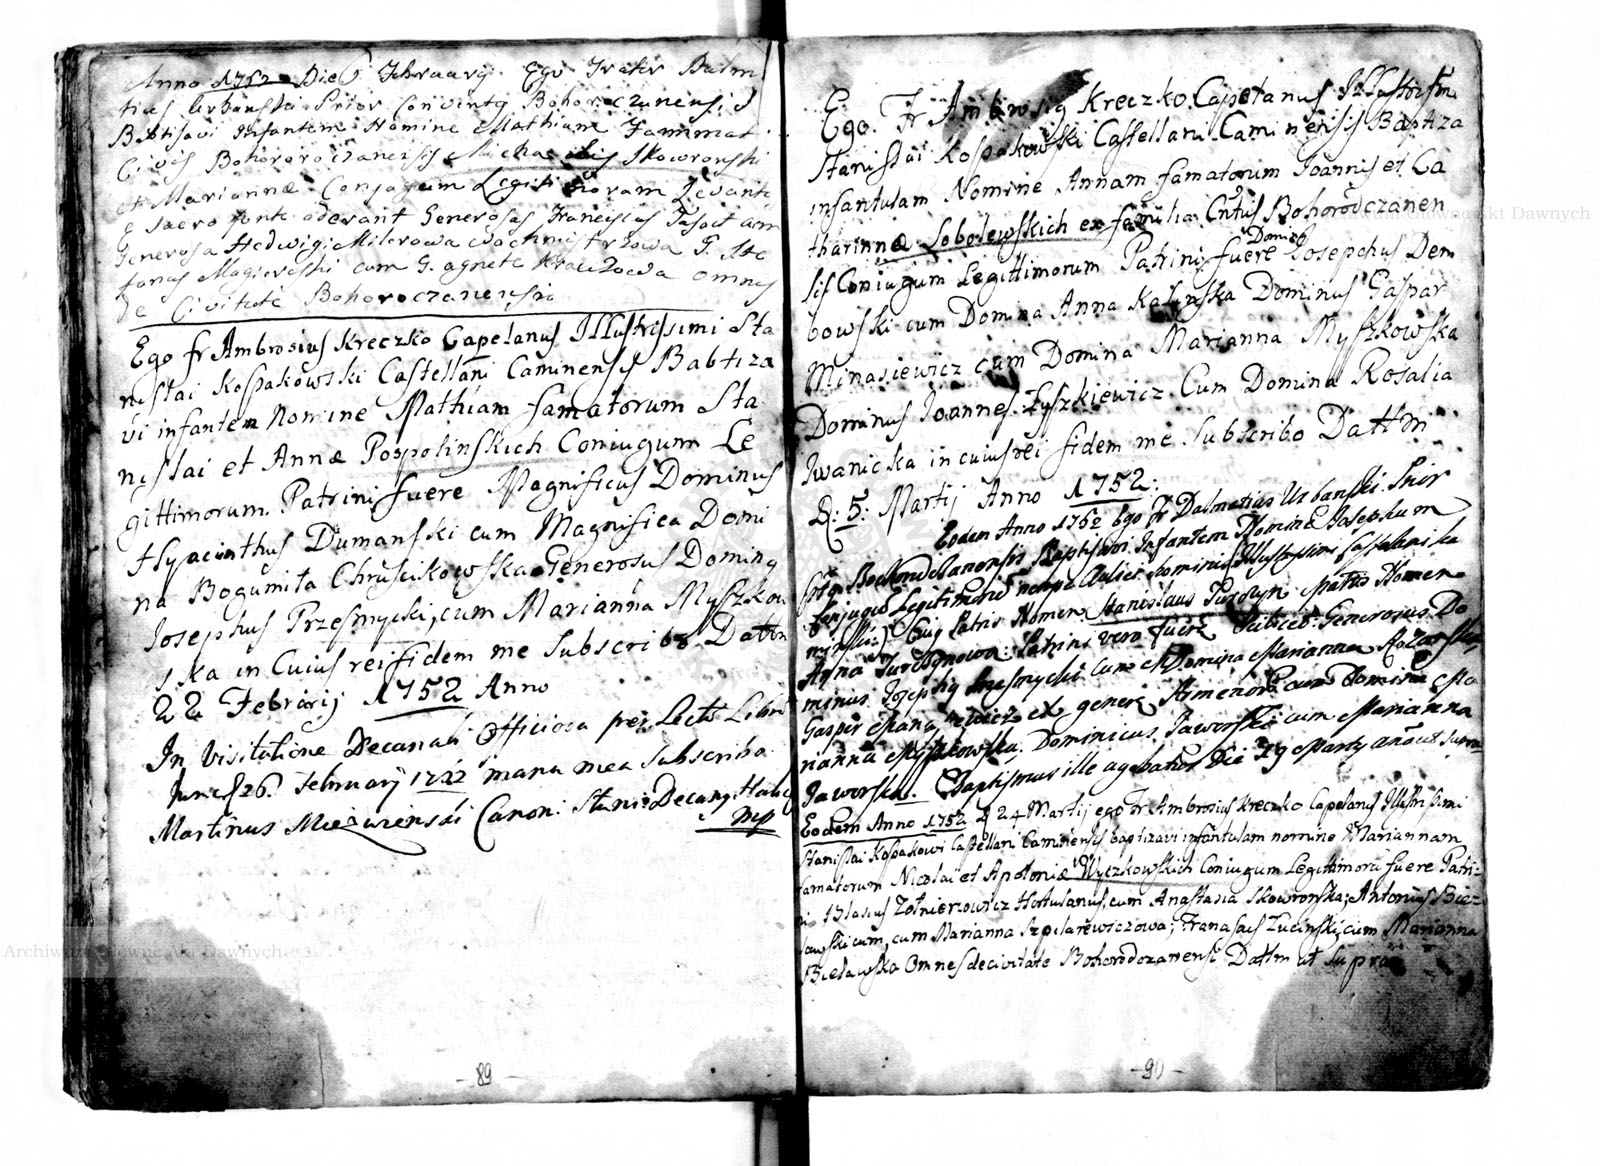 Anno 1752 Die 6 Februarij Ego Frater Dalm
tius Urbanski Prior Conventg Bohoroczanensis
Baptisavi Infantem Nomine Mathium Fammat
Civis Bohororoczanensis Michaelis Skowronski
et Mariannæ Conjugum Legiti morum Levante
e Sacro fonte aderant Generosus Franciscus
Generosa Hedwigi Milerowa Wachmistrzowa G. Ste
fanus Magierski cum G. agnete Krawczowa omnes
De Civitate Bohoroczanensia
Ego fr Ambrosius Kreczko Capelanus Illustrissimi Sta
nislai Kospakowski Castellani Caminensis Babtiza
vi infantem Nomine Mathiam famatorum Sta
nislai et Annæ Pospolinskich Coniugum Le
gittimorum Patrini fuere Magnificus Dominus
Hyacinthus Dumanski cum Magnifica Domi
na Bogumiła Chruscikowska Generosus Doming
Josephus Przesmycki, cum Marianna Myszkow
ska in Cuius rei fidem me Subscribo Dattm
22 Febrarij 1752 Anno
In Visitatione Decanali Officiosa per Lecto Libro
hunc d 26. Februarij 1752 manu mea Subscribo
Martinus Canon: Stanis Decang Halic
mp
89
Ego Fr Ambrosig Kreczko Capelanus Illustrissim
Stanislai Kospakowski Castellani Caminensis Baptiza
infantulam Nomine Annam famatorum Joannis et Ca
tharinnæ Sobolewskich ex familia Cntus Bohorodczanen
sis Coniugum Legittimorum Patrini fuere Doming Josephus Dem
bowski cum Domina Anna Kalinska Dominus Gaspar
Minasiewicz cum Domina Marianna Myszkowska
Dominus Joannes Zyszkiewicz Cum Domina Rosalia
Jwanicka in cuius rei fidem me Subscribo Dattm
D: 5: Martij Anno 1752:
Eodem Anno 1752 Ego Fr Dalmatius Urbanski Prior
Bohorodczanensis Baptisavi Infantem Nomine Josephum
Conjugū Legitimorū nempe Aulici nominis Illustrissimi Castelani Ka
Cuig Patris Nomen Stanislaus Turczyn Matris Nomen
Anna Turczynowa: Patrini vero fuere Scilicet Generosus Do
minus Josephg Przesmycki cum Domina Marianna
Gasper ex genere Armenorū cum Domina Ma
rianna Myszkowska, Dominicus Jaworski cum Marianna
Jaworska. Baptismus ille agebatur Die 19 Martij año ut supra
Eodem Anno 1752 D 24 Martij ego Fr Ambrosius Kreczko Capelanus Illustrissimi
Stanislai Kospakowi Castellani Caminensis baptizavi infantulam nomine Mariannam
famatorum Nicolai et Apoloniæ Wyczkowskich Coniugum Legittimorū fuere Patri-
ni Blasius Zołnierzowicz Hortulanus, cum Anastasia Skowronska; Antonius Bie-
lawski cum, cum Marianna Szpilarewiczowa; Franciscus Zucinski, cum Marianna
Bielawska Omnes de civitate Bohorodczanensi Dattm ut supra
90
Archiwum Główne Akt Dawnych
Archiwum Główne Akt Dawnych